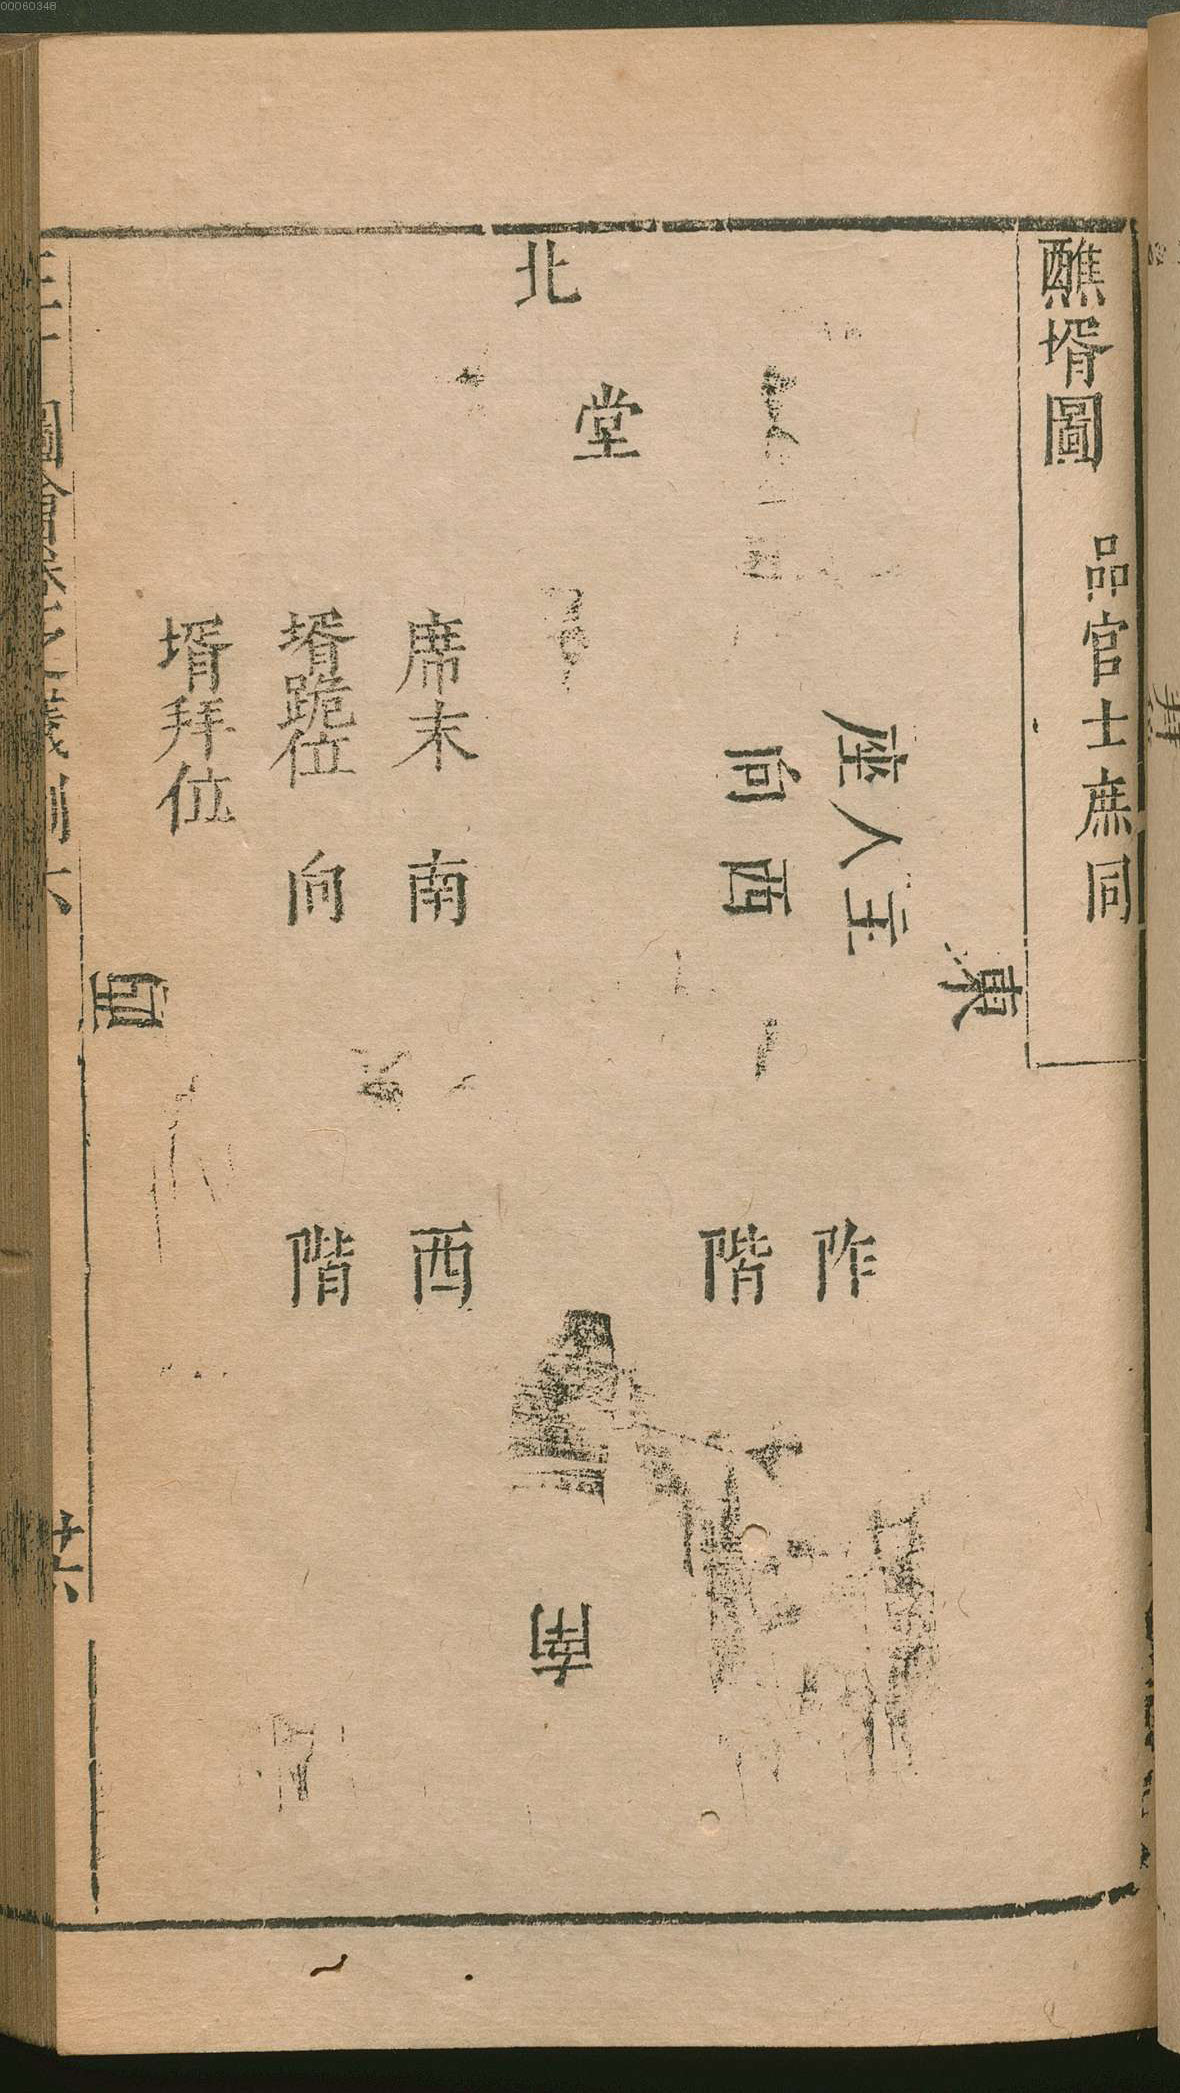 00060348
醮壻圖
品官士庶同
北
堂
東
主人座
西向
席末
南
壻跪位
向
壻拜位
西
阼
階
西
階
南
圖會
儀制六
廿六